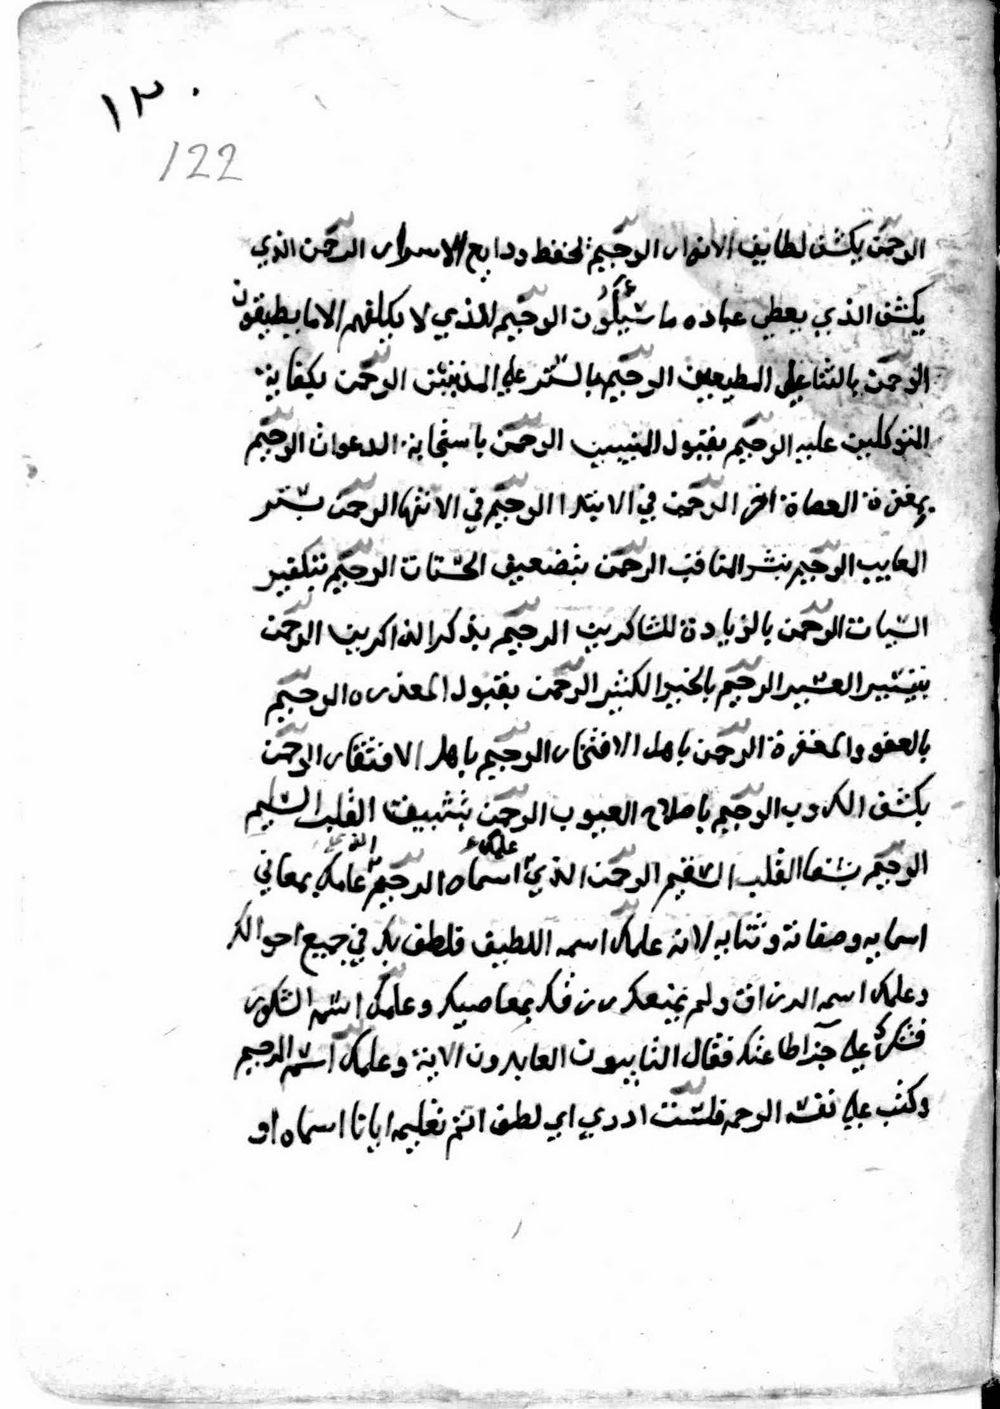 ١٢٠
122
الرحمن يكشف لطايف الانوار الرحيم بحفظ ودايع الاسرار الرحمن الذي
يكشف الذي يعطي عباده ما يسئلون الرحيم الذي لا يكلفهم الا ما يطيقون
الرحمن بالثنا علي المطيعين الرحيم بالستر علي المذنبين الرحمن بكفاية
المتوكلين عليه الرحيم بقبول المنيبين الرحمن باستجابة الدعوات الرحيم
بمغفرة العصاة اخر الرحمن في الابتدا الرحيم في الانتها الرحمن بستر
المعايب الرحيم بنشر المناقب الرحمن بتضعيف الحسنات الرحيم بتكفير
السيات الرحمن بالزيادة للشاكرين الرحيم بذكر الذاكرين الرحمن
بتيسير العسير الرحيم بالخير الكثير الرحمن بقبول المعذره الرحيم
بالعفو والمغفرة الرحمن باهل الافتخار الرحيم باهل الافتقار الرحمن
بكشف الكروب الرحيم باصلاح العيوب الرحمن بتثبيت القلب السليم
الرحيم بشفا القلب السقيم الرحمن الذي علمك اسماه الرحيم الذي عاملك بمعاني
اسمايه وصفاته وثنايه لانه علمك اسمه اللطيف فلطف بكم في جميع احوالكم
وعلمك اسمه الرزاق ولم يمنعكم رزقكم بمعاصيكم وعلمك اسمه الشكور
فشكرك علي جزا طاعتكم فقال التايبون العابدون الاية وعلمك اسمه الرحيم
وكتب علي نفسه الرحمه فلست ادري اي لطف اتم تعليمه ايانا اسماه او